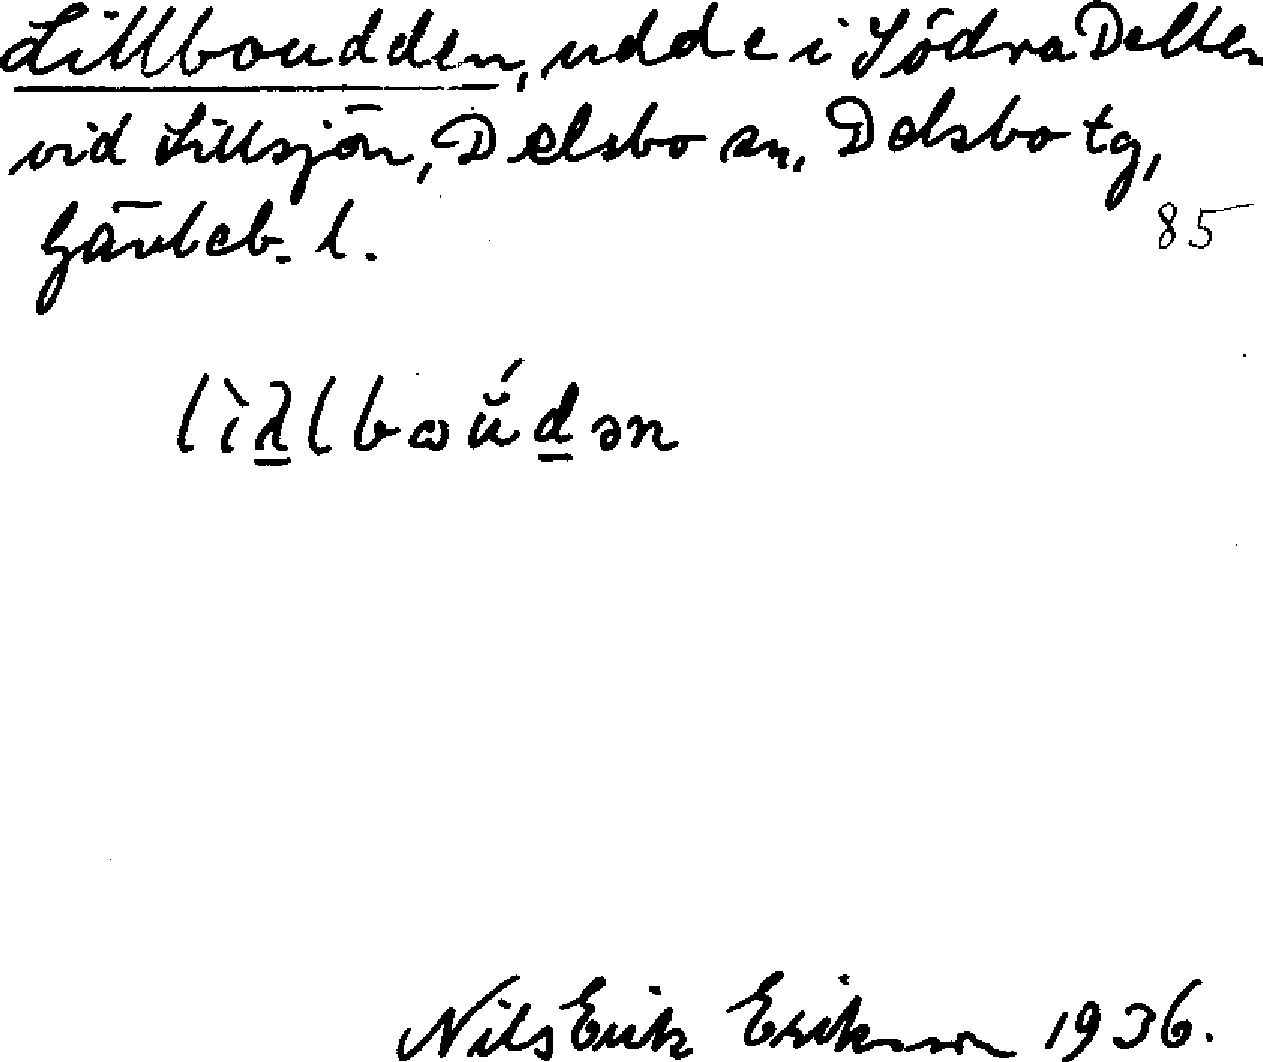 Lillboudden, udde i Södra Dellen
vid Lillsjön, Delsbo sn, Delsbo tg,
Gävleb. l.
85
lìλlbωŭ́dən
Nils Erik Erikson 1936.